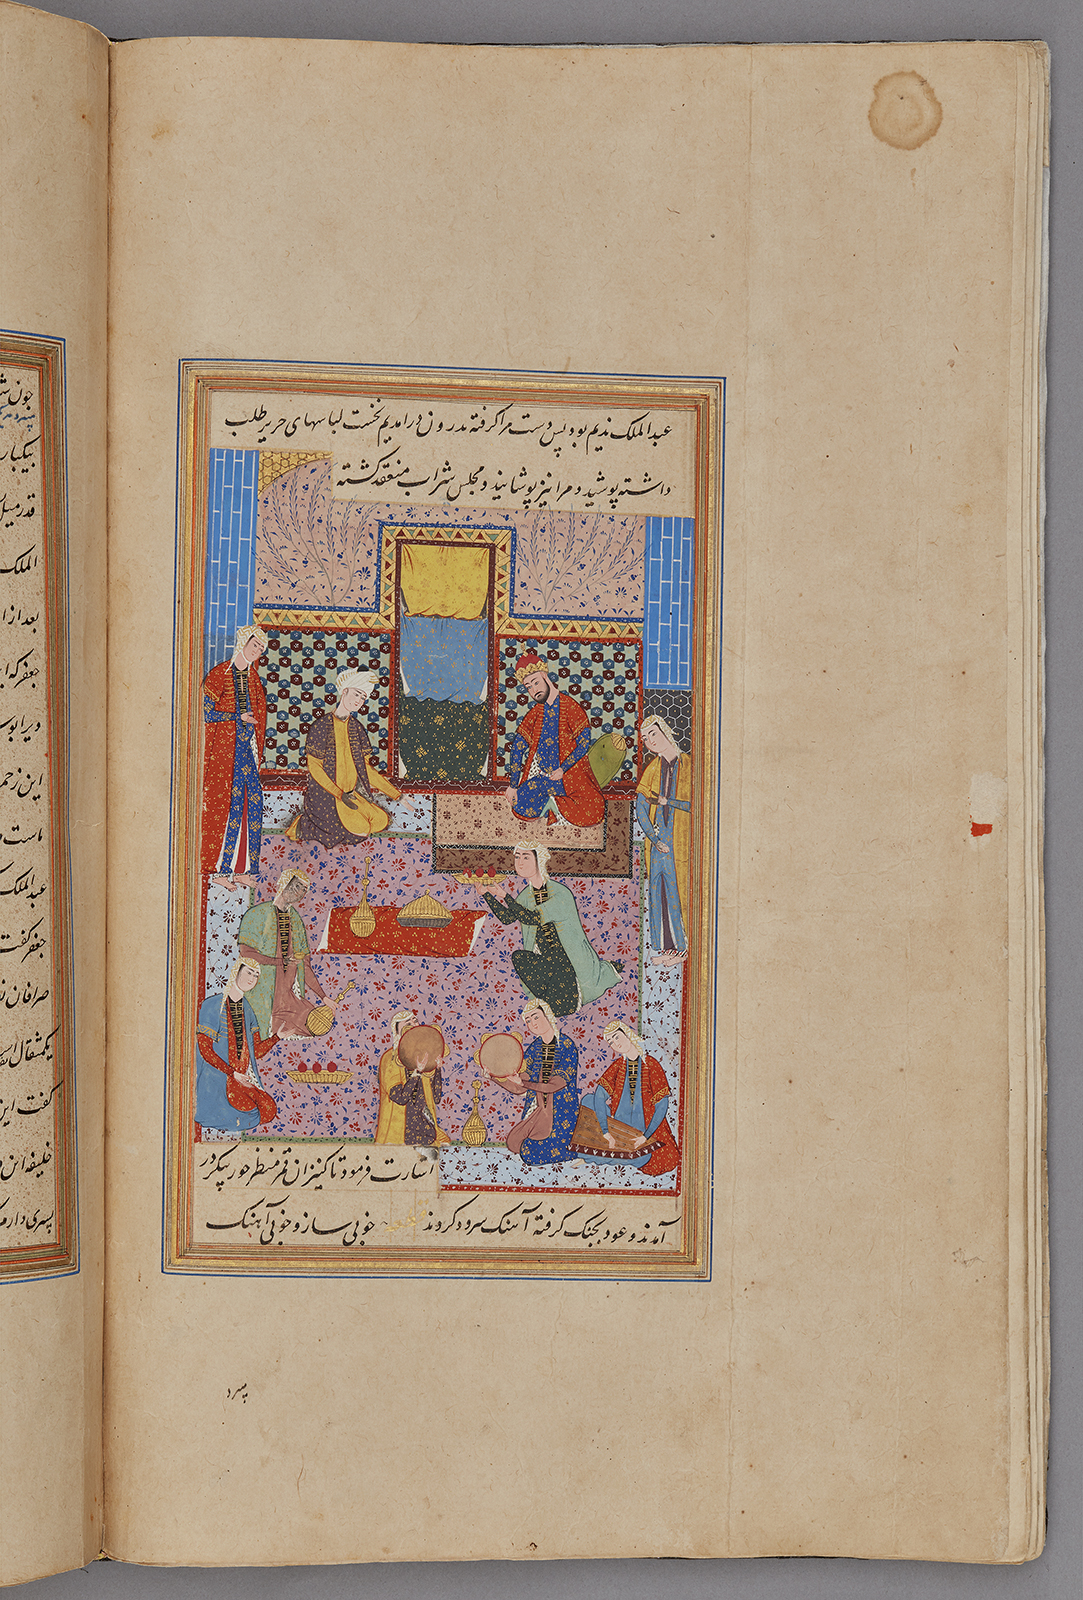 عبدالملک ندیم بود پس دست مرا گرفته بدرون درآمدیم نخست لباسهای حریر طلب
داشته پوشید و مرا نیز پوشانید و مجلس شراب منعقد گشته
اشارت فرمود تا کنیزان قمر منظر حور پیکر در
آمدند و عود بچنک گرفته آهنک سرود کردند خوبی ساز و خوبی آهنک
چون
بیکبار
قدر میل
الملک
بعد از
جعفر که
ویرا
این زحم
ماست
عبدالملک
جعفر گفت
صرافان
یکمثقال
گفت این
خلیفه این
پسری دارم